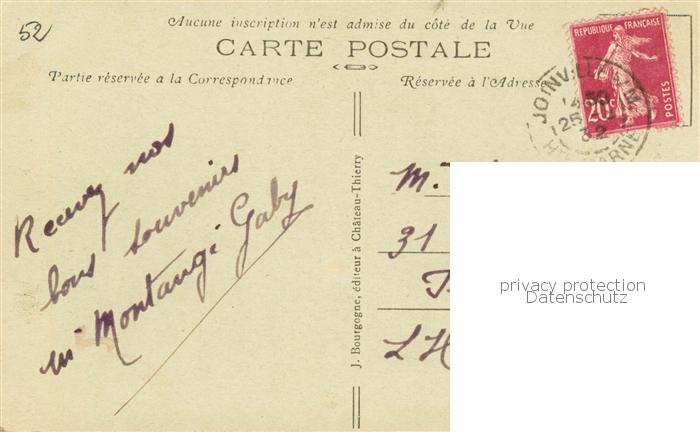 52
Aucune inscription n'est admise du côté de la Vue
CARTE POSTALE
Partie réservée a la Correspondance
Réservée à l'Adresse
REPUBLIQUE FRANÇAISE
POSTES
20c
JOINVILLE
25
32
HTE MARNE
Recevez nos
bons souvenirs
Gaby
J. Bourgogne, éditeur à Château-Thierry
M.
31
privacy protection
Datenschutz